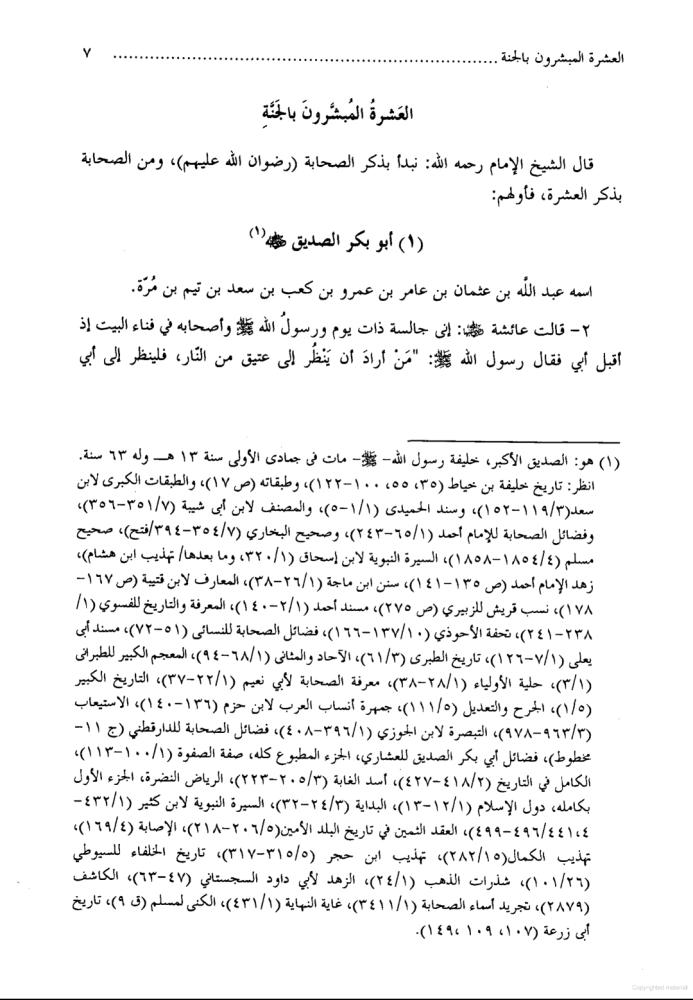 العشرة المبشرون بالجنة ........................................................................ ٧
العَشرةُ المُبشَّرونَ بالجَنَّةِ
قال الشيخ الإمام رحمه الله: نبدأ بذكر الصحابة (رضوان الله عليهم)، ومن الصحابة
بذكر العشرة، فأولهم:
(١) أبو بكر الصديق ﵁(١)
اسمه عبد اللَّه بن عثمان بن عامر بن عمرو بن كعب بن سعد بن تيم بن مُرّة.
٢- قالت عائشة ﵂: إنى جالسة ذات يوم ورسولُ الله ﷺ وأصحابه في فناء البيت إذ
أقبل أبي فقال رسول الله ﷺ: "مَنْ أرادَ أن يَنْظُر إلى عتيق من النّار، فلينظر إلى أبي
(١) هو: الصديق الأكبر، خليفة رسول الله- ﷺ- مات فى جمادى الأولى سنة ١٣ هـ وله ٦٣ سنة.
انظر: تاريخ خليفة بن خياط (٣٥، ٥٥، ١٠٠-١٢٢)، وطبقاته (ص ١٧)، والطبقات الكبرى لابن
سعد(١١٩/٣-١٥٢)، وسند الحميدى (١/١-٥)، والمصنف لابن أبى شيبة (٣٥١/٧-٣٥٦)،
وفضائل الصحابة للإمام أحمد (٦٥/١-٢٤٣)، وصحيح البخاري (٣٥٤/٧-٣٩٤/فتح)، صحيح
مسلم (١٨٥٤/٤-١٨٥٨)، السيرة النبوية لابن إسحاق (٣٢٠/١، وما بعدها/ تهذيب ابن هشام)،
زهد الإمام أحمد (ص ١٣٥-١٤١)، سنن ابن ماجة (٢٦/١-٣٨)، المعارف لابن قتيبة (ص ١٦٧-
١٧٨)، نسب قريش للزبيري (ص ٢٧٥)، مسند أحمد (٢/١-١٤٠)، المعرفة والتاريخ للفسوي (١/
٢٣٨-٢٤١)، تحفة الأحوذي (١٣٧/١٠-١٦٦)، فضائل الصحابة للنسائى (٥١-٧٢)، مسند أبى
يعلى (٧/١-١٢٦)، تاريخ الطبرى (٦١/٣)، الآحاد والمثانى (٦٨/١-٩٤)، المعجم الكبير للطبرانى
(٣/١)، حلية الأولياء (٢٨/١-٣٨)، معرفة الصحابة لأبي نعيم (٢٢/١-٣٧)، التاريخ الكبير
(١/٥)، الجرح والتعديل (١١١/٥)، جمهرة أنساب العرب لابن حزم (١٣٦-١٤٠)، الاستيعاب
(٩٦٣/٣-٩٧٨)، التبصرة لابن الجوزي (٣٩٦/١-٤٠٨)، فضائل الصحابة للدارقطني (ج ١١-
مخطوط)، فضائل أبي بكر الصديق للعشاري، الجزء المطبوع كله، صفة الصفوة (١٠٠/١-١١٣)،
الكامل في التاريخ (٤١٨/٢-٤٢٧)، أسد الغابة (٢٠٥/٣-٢٢٣)، الرياض النضرة، الجزء الأول
بكامله، دول الإسلام (١٢/١-١٣)، البداية (٢٤/٣-٣٢)، السيرة النبوية لابن كثير (٤٣٢/١-
٤٤١،٤/٤٩٦-٤٩٩)، العقد الثمين في تاريخ البلد الأمين(٢٠٦/٥-٢١٨)، الإصابة (١٦٩/٤)،
تهذيب الكمال(٢٨٢/١٥)، تهذيب ابن حجر (٣١٥/٥-٣١٧)، تاريخ الخلفاء للسيوطي
(١٠١/٢٦)، شذرات الذهب (٢٤/١)، الزهد لأبي داود السجستاني (٤٧-٦٣)، الكاشف
(٢٨٧٩)، تجريد أسماء الصحابة (٣٤١١/١)، غاية النهاية (٤٣١/١)، الكنى لمسلم (ق ٩)، تاريخ
أبى زرعة (١٠٧، ١٠٩ ،١٤٩).
Copyrighted material